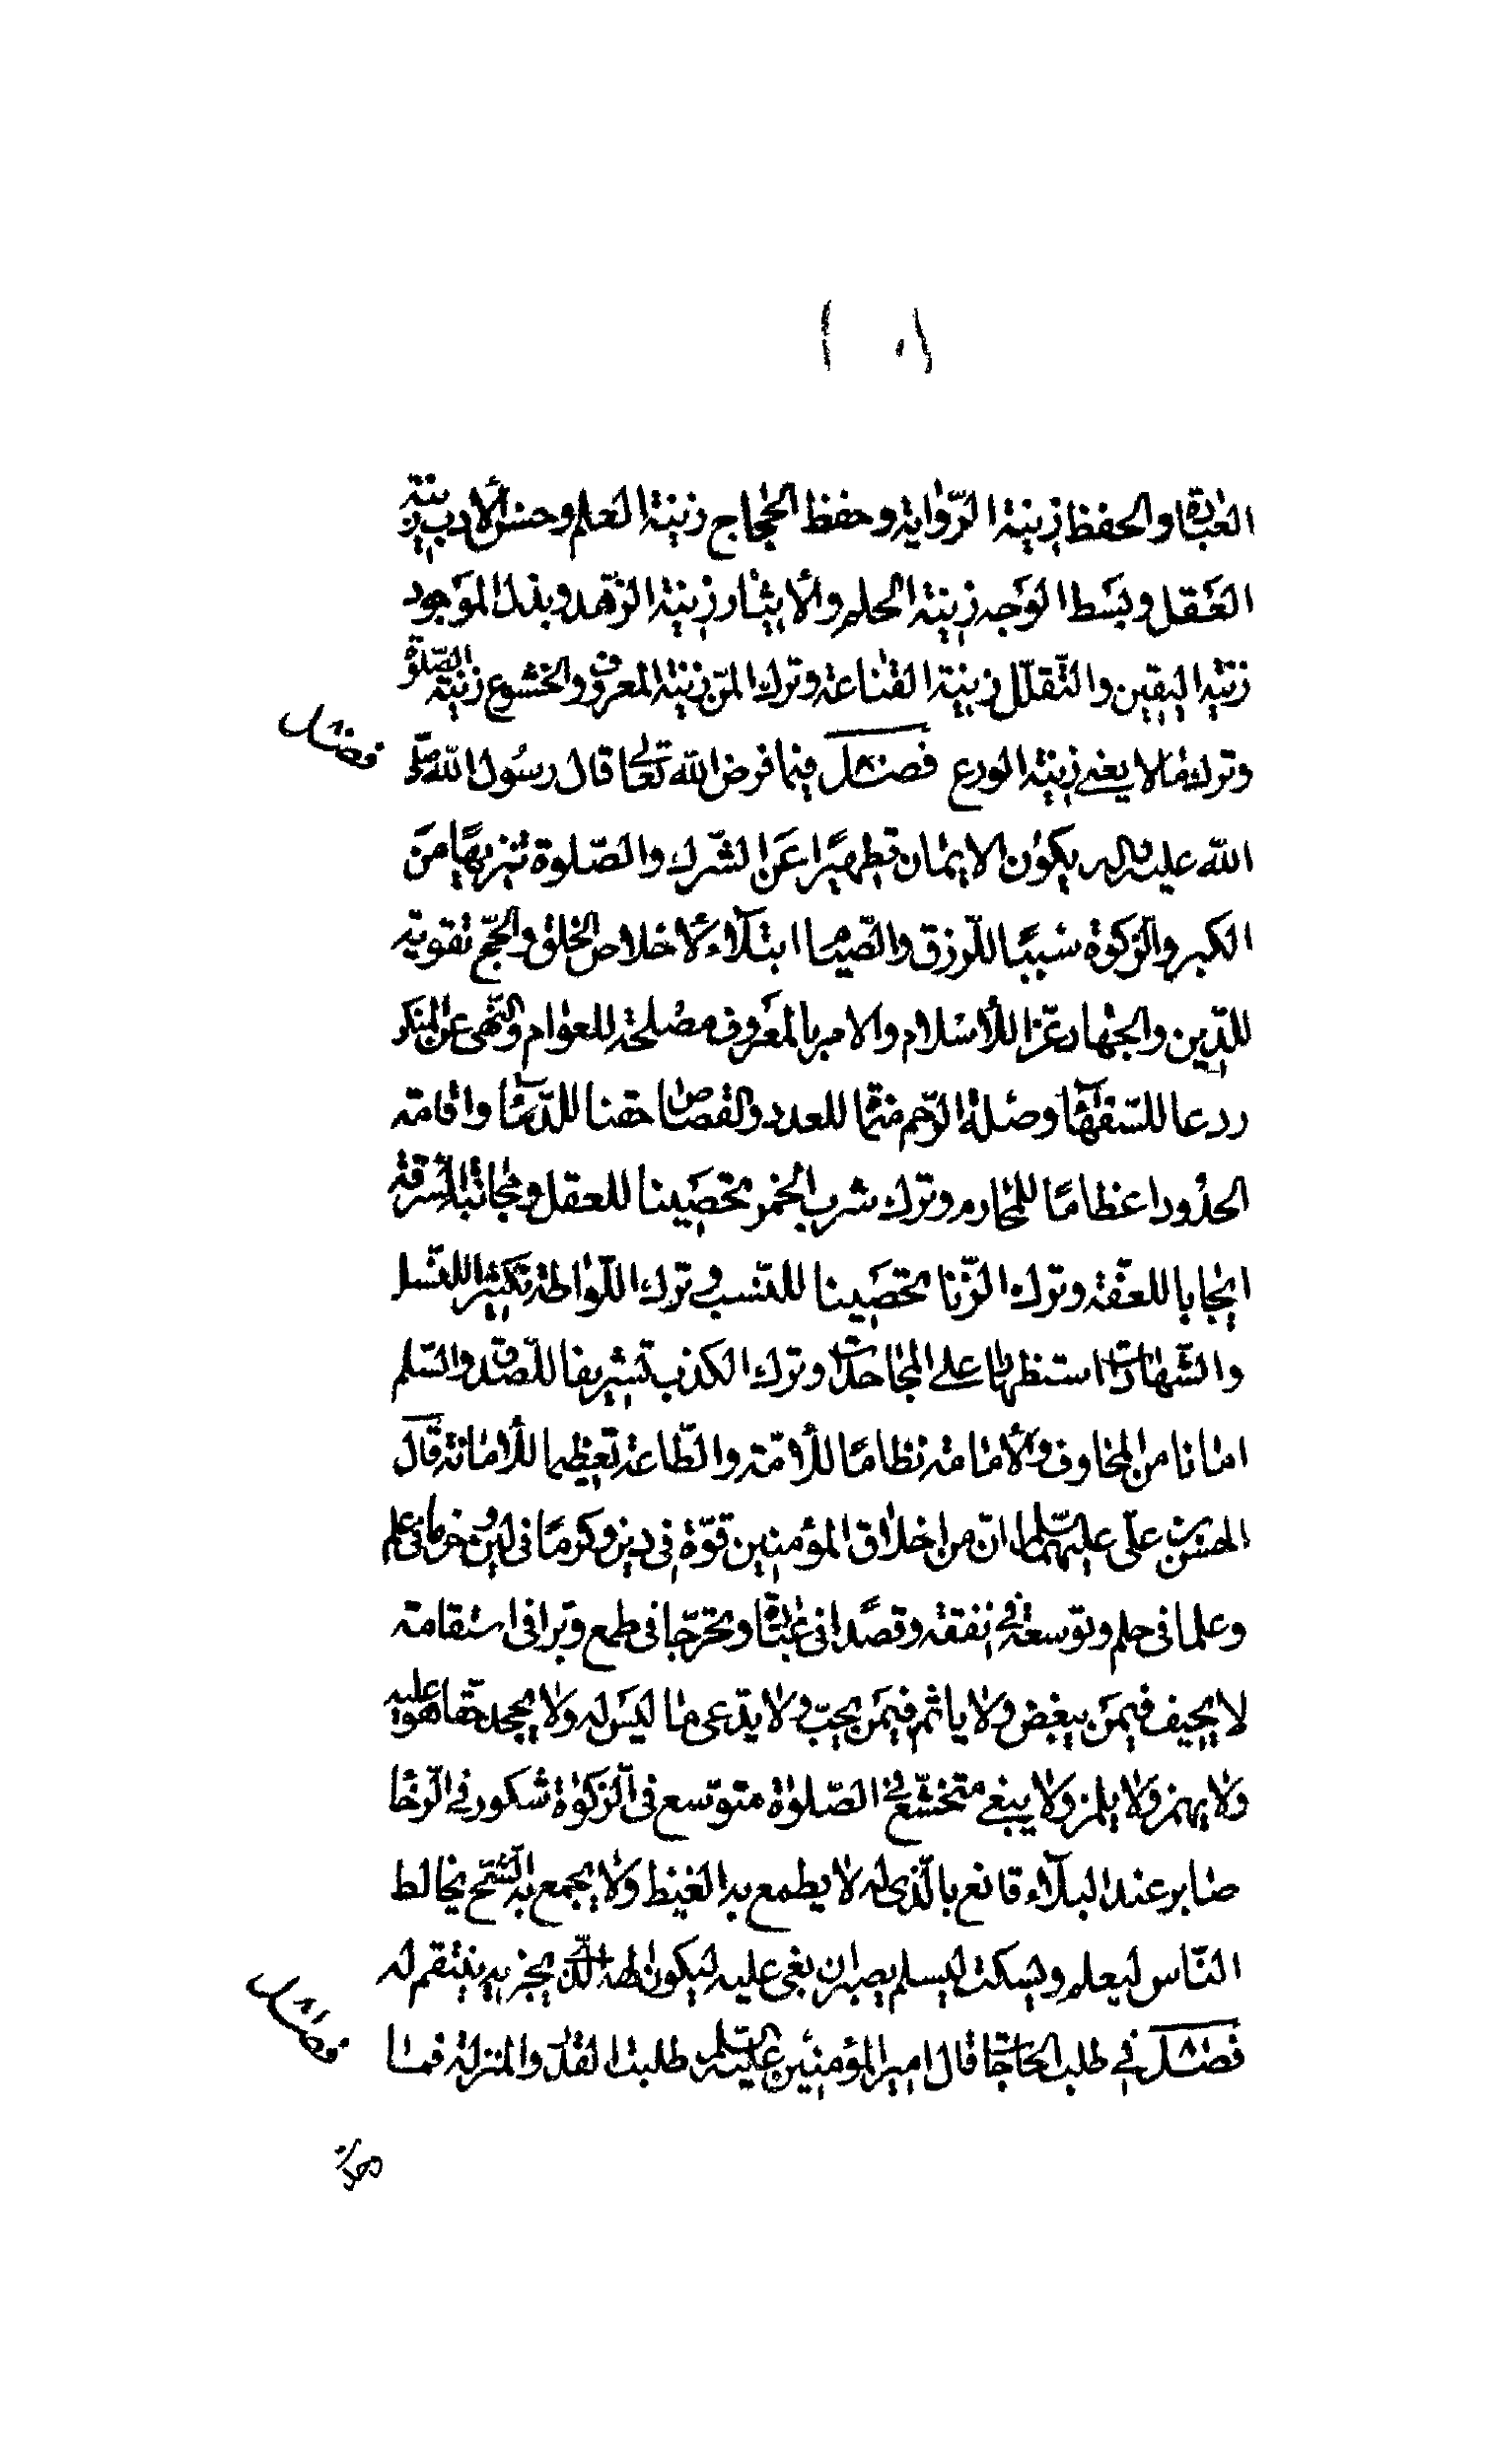 ١٠١
العبادة والحفظ زينة الرّواية وحفظ الحجاج زينة العلم وحسن الأدب زينة
العَقل وبَسَط الوَجه زينة الحلم والأيثار زينة الزّهد وبذل المَوجود
زينة اليقين والتّقلّل زينة القناعة وترك المنّ زينة المعروف والخشوع زينة الصّلوة
وترك ما لا يعنى زينة الورع فصل فيما فرض الله تعالى قال رسُول الله صلّى
الله عليه واله يكون الايمان تطهيرًا عَن الشّرك والصّلوة تنزيهًا مِنَ
الكبر والزّكوة سَببًا للرّزق والصّيام ابتلاء لأخلاص الخلق والحجّ تقوية
للدّين والجهاد عزّا للأسْلام والامر بالمَعروف مصُلحة للعوام والنّهى عن المنكر
ردعا للسّفهاء وصلة الرّحم منما للعدد والقصاص حقنا للدّماء واقامة
الحدُود اعظامًا للمحارم وترك شرب الخمر تحصَينا للعقل ومجانبة السّرقة
ايجابا للعفّة وترك الزّنا تحصَينا للنّسب وترك اللّواطة تكثيرا للنّسل
والشّهادات استظهارا على المجاحدات وترك الكذب تشريفا للصّدق والسّلم
امانا من المخاوف والأمامة نظامًا للأمّة والطّاعة تعظيما للأمانة قال
الحسن بن علّى عليهما السّلم انّ من اخلاق المؤمنين قوّة فى دين وكرمًا فى لين وحزما فى علم
وعلما فى حلم وتوسعة فى نفقة وقصدًا فى عبادة وتحرّجا فى طمع وبرّا فى استقامة
لا يحيف فيمَن يبغض ولا ياثم فيمَن يحبّ ولا يدّعى ما ليَس له ولا يجحد حقّا هو عليه
ولا يهمز ولا يلمز ولا يبغى متخشّع فى الصّلوة متوسّع فى الزّكوة شكور فى الرّخا
صابر عند البلاء قانع بالّذى له لا يطمع به الغيظ ولا يجمع به الشّحّ يخالط
النّاس ليعلم ويسكت ليسلم يصبر ان بغى عليه ليكون الهه الّذى يجزيه ينتقم له
فصل فى طلب الحاجات قال امير المؤمنين عليه السّلم طلبت القدر والمنزلة فما
فصل
فصل